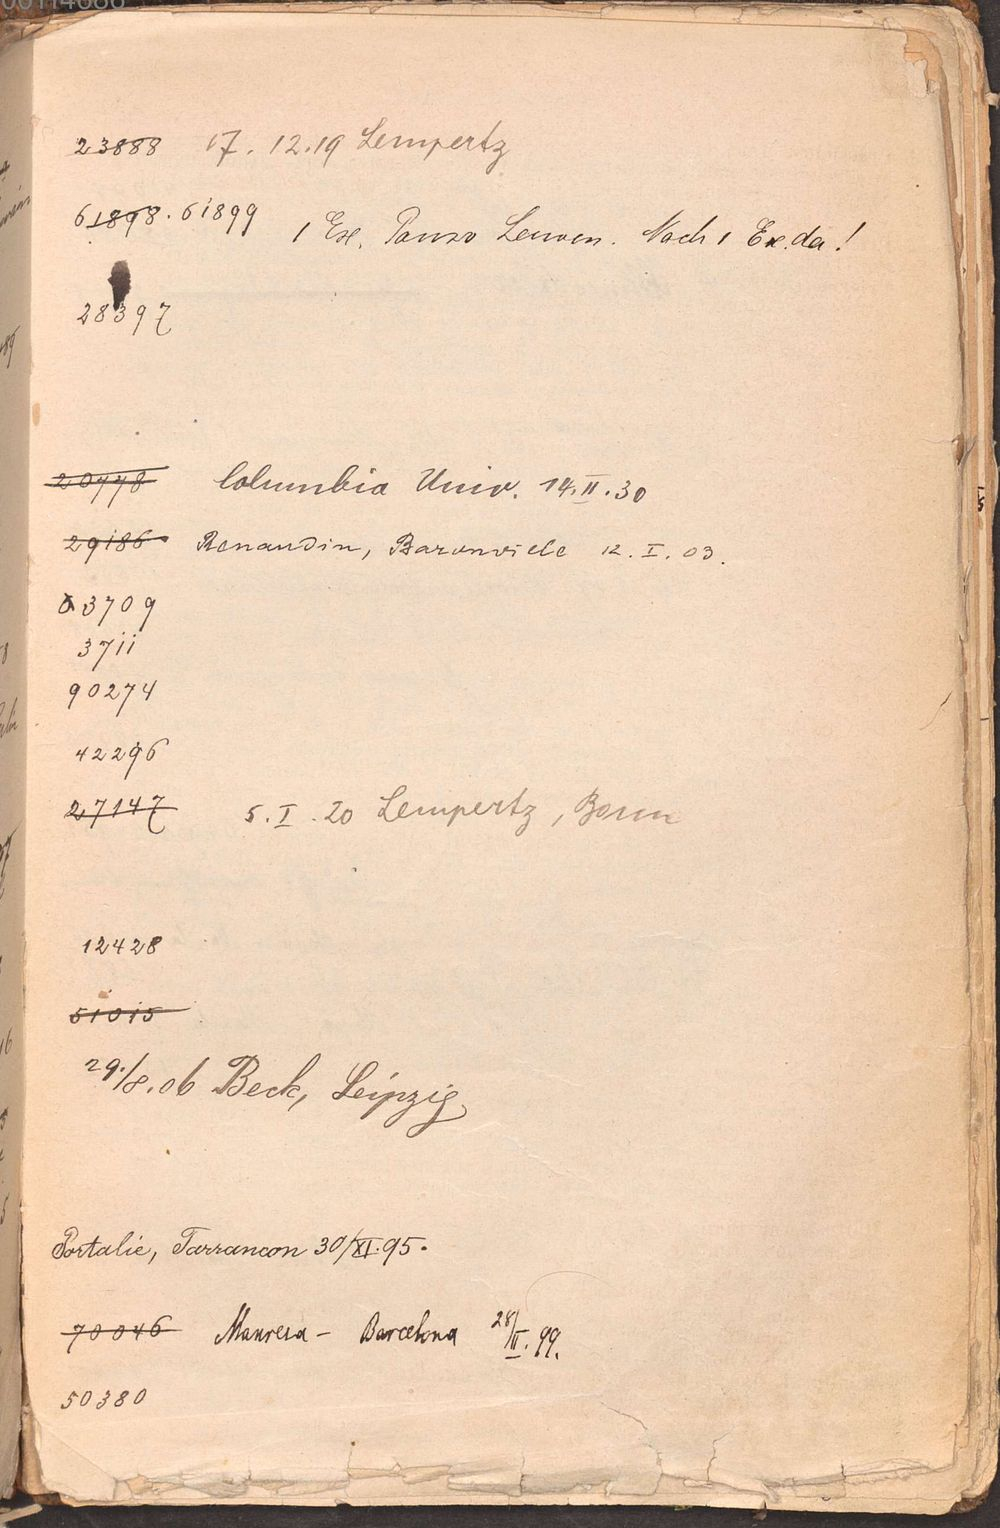 23888 17. 12. 19 Lempertz
61898. 61899 1 Ex. Leuven. Noch 1 Ex. da!
28397
20778 Columbia Univ. 14. II. 30
29186 Renaudin, Baronville 12. I. 03.
3709
3711
90274
42296
27147 5. I. 20 Lempertz, Bonn
12428
51015
29./8. 06 Beck, Leipzig
Portalie, Tarrancon 30/XI. 95.
70046 Manresa - Barcelona 28/II. 99.
50380